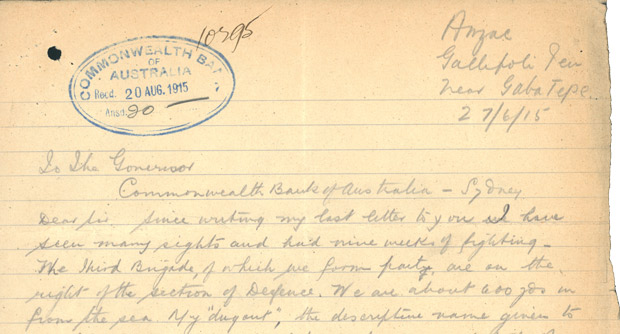 10795
COMMONWEALTH BA
OF
AUSTRALIA
Recd. 20 AUG. 1915
Ansd. 20
Anzac
Gallipoli Pen
Near Gaba Tepe.
27/6/15
To The Governor
Commonwealth Bank of Australia - Sydney
Dear Sir Since writing my last letter to you I have
seen many sights and had nine weeks of fighting -
The Third Brigade, of which we form part, are on the
right of the section of Defence. We are about 600 yds in
from the sea. My "dugout", the discriptive name given to